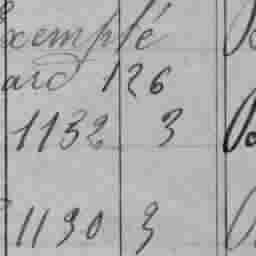 xemplé
ard 126
1132 3
1130 3